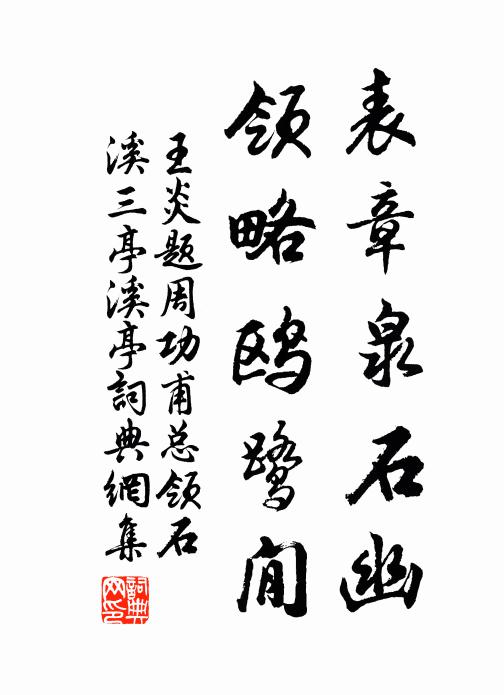 表章泉石幽
領略鸥鹭閒
王炎题周功甫总领石
溪三亭溪亭詞典網集
詞典网印